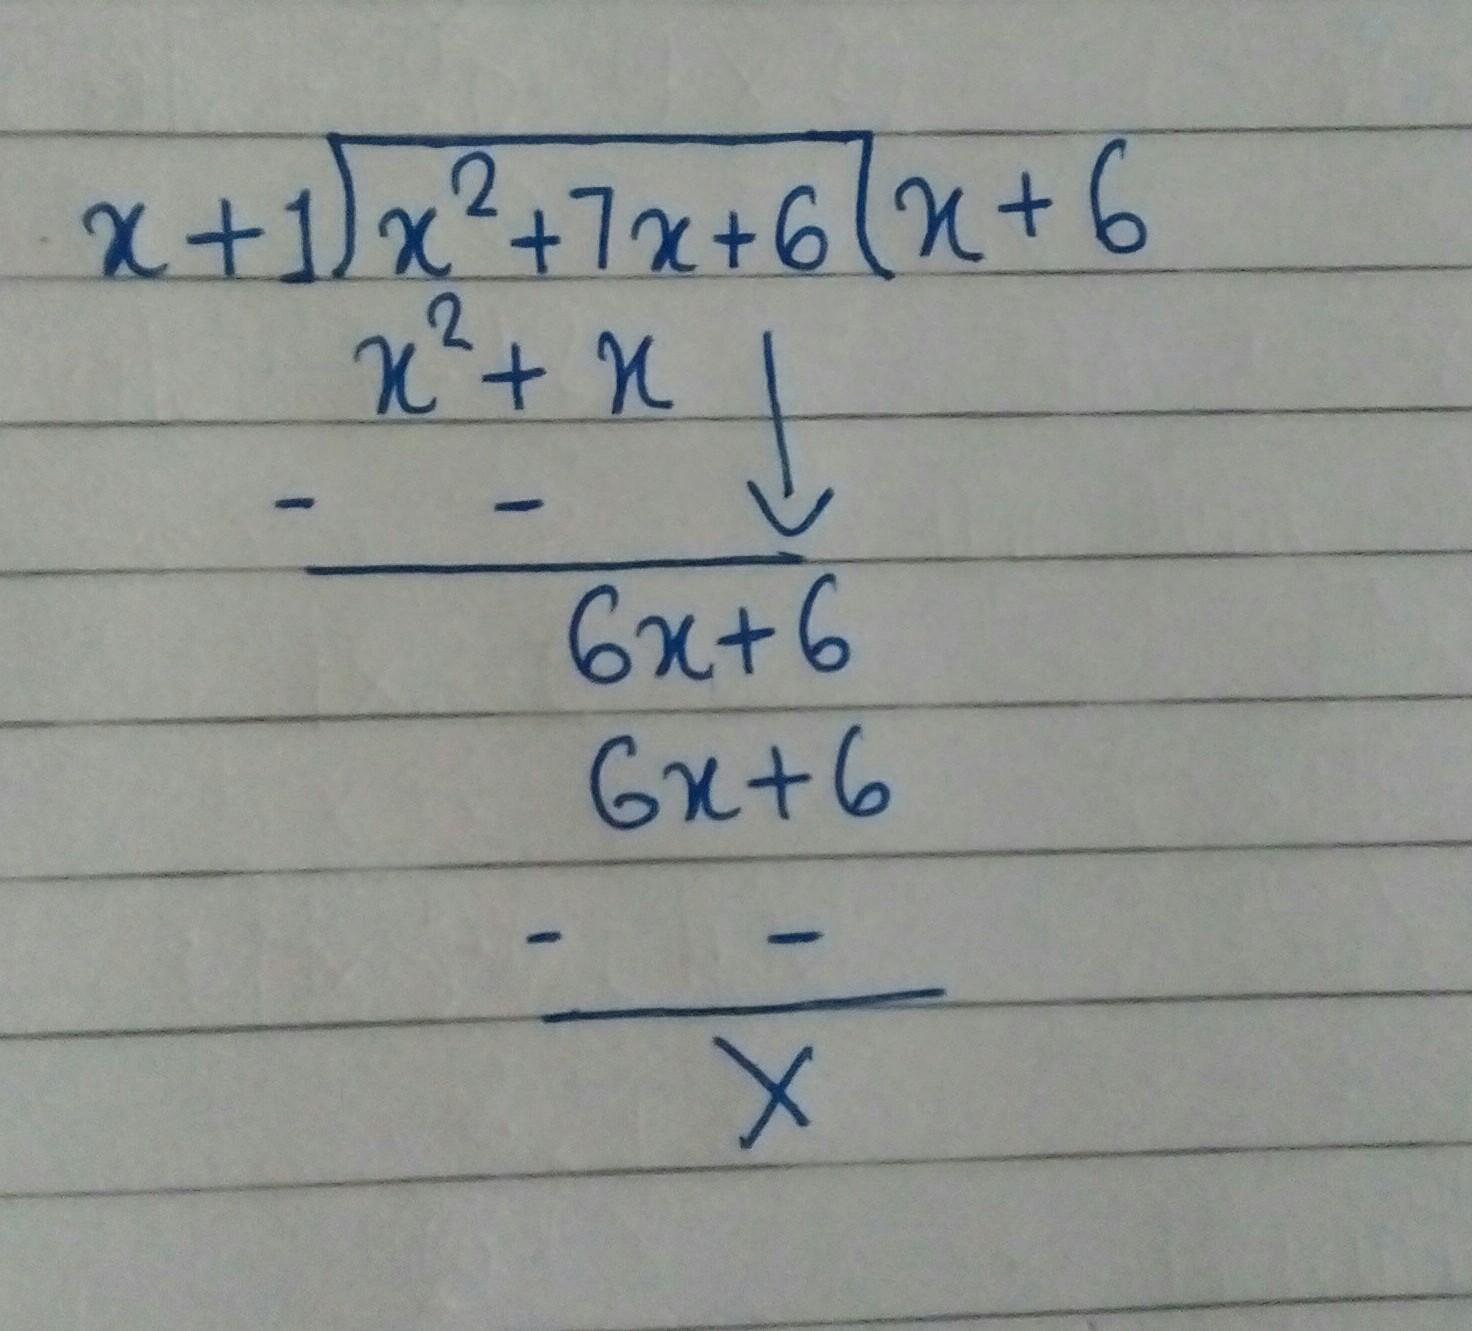 x+1)x²+7x+6(x+6
x²+ x
- -
6x+6
6x+6
- -
X